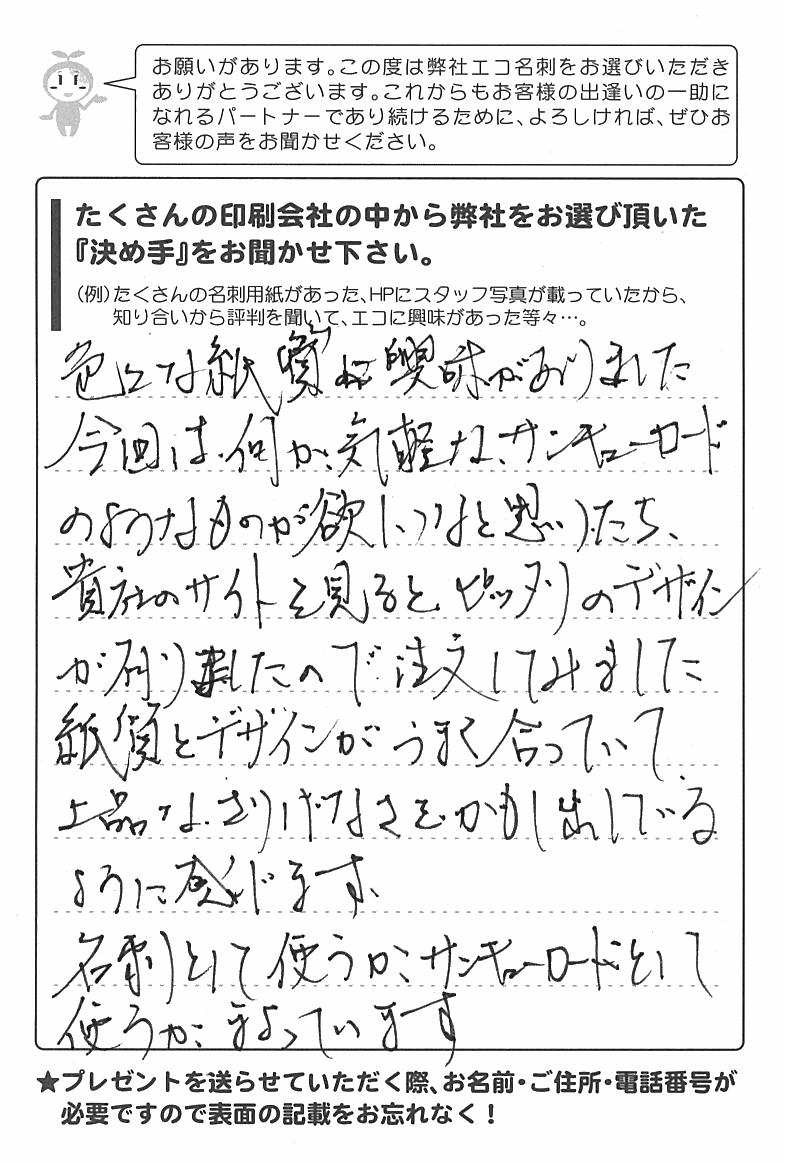 お願いがあります。この度は弊社エコ名刺をお選びいただき
ありがとうございます。これからもお客様の出逢いの一助に
なれるパートナーであり続けるために、よろしければ、ぜひお
客様の声をお聞かせください。
たくさんの印刷会社の中から弊社をお選び頂いた
『決め手』をお聞かせ下さい。
（例）たくさんの名刺用紙があった、HPにスタッフ写真が載っていたから、
知り合いから評判を聞いて、エコに興味があった等々…。
色々な紙質に興味がありました
今回は、何か、気軽な、サンキューカード
のようなものが欲しいなと思いたち、
貴社のサイトを見ると、ピッタリのデザイン
が有りましたので注文してみました
紙質とデザインがうまく合っていて、
上品な、さりげなさを、かもし出している
ように感じます、
名刺として使うか、サンキューカードとして
使うか、まよっています
★プレゼントを送らせていただく際、お名前・ご住所・電話番号が
必要ですので表面の記載をお忘れなく！